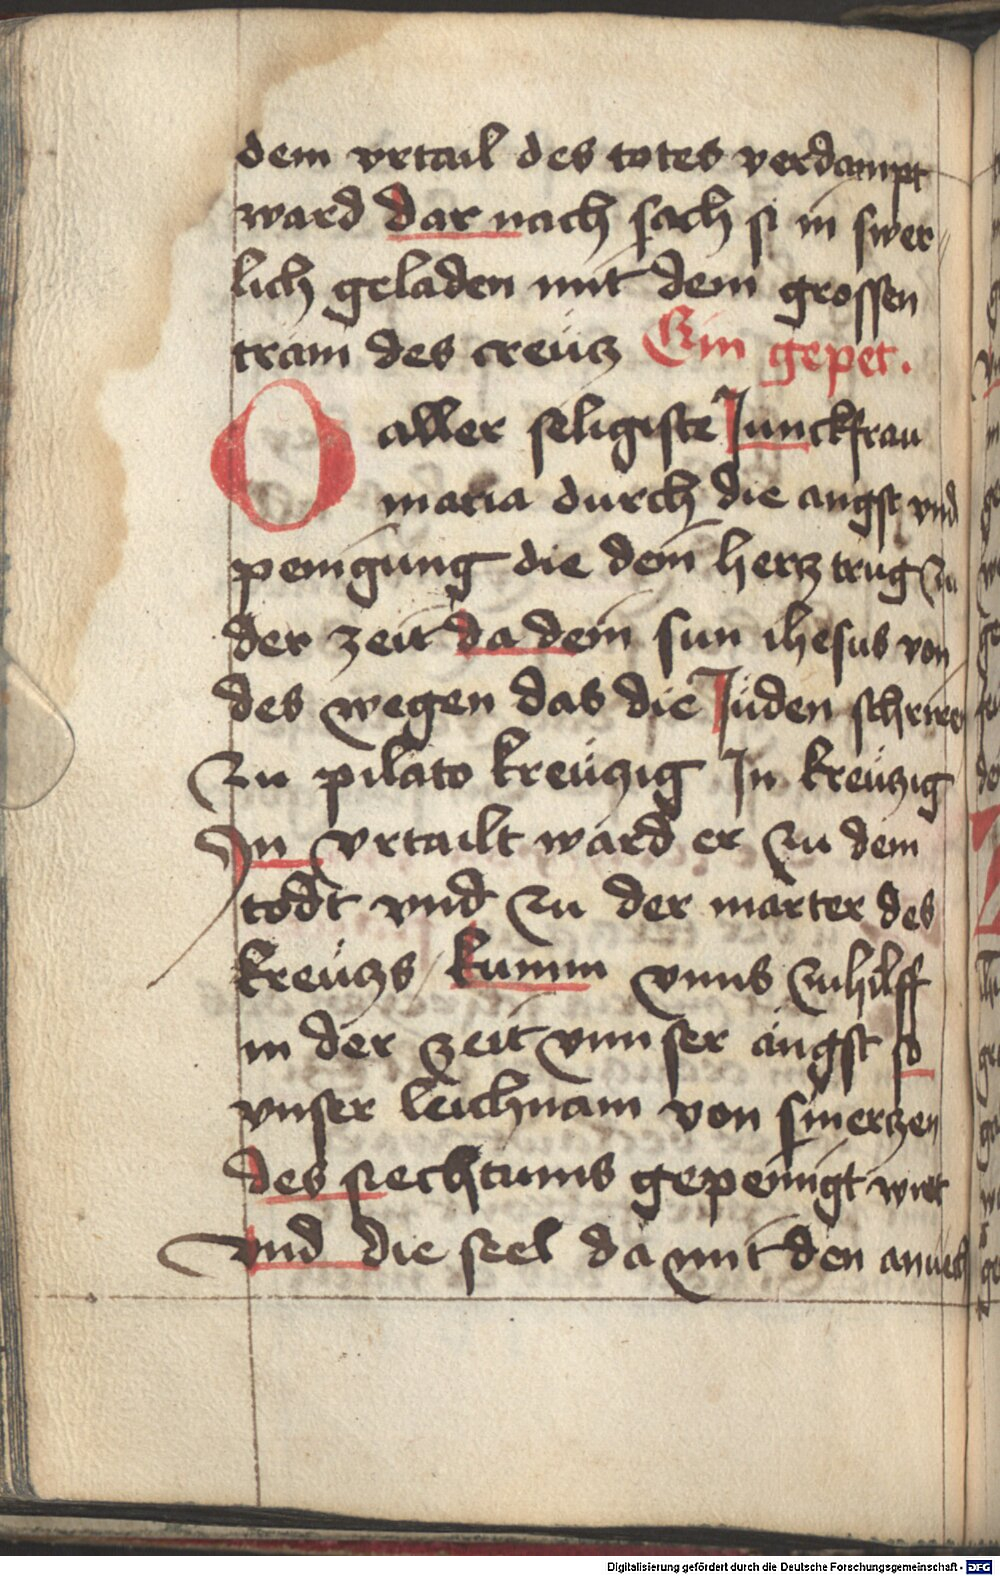 dem vrtail des totes verdampt
ward dar nach sach si in swer
lich geladen mit dem grossen
tram des creücz Ein gepet.
O aller seligiste Junckfrau
maria durch die angst vnd
peinigung die dein hercz trug zu
der zeit da dein sun ihesus von
des wegen das die Juden schriren
zu pilato kreüczig In kreüczig
In vrtailt ward er zu dem
todt vnd zu der marter des
kreüczs / kumm vnns zuhilff
in der zeit vnnser angst so
vnser leichnam von smerczen
des siechtums gepeinigt wirt
vnd die seel da mit den anuech
Digitalisierung gefördert durch die Deutsche Forschungsgemeinschaft - DFG